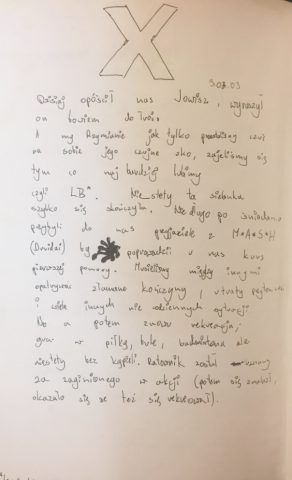 X
9.07.03
Dzisiaj opóścił nas Jowisz, wyruszył
on bowiem do Troi.
A my Rzymianie jak tylko przestaliśmy czuć
na sobie jego czujne oko, zajeliśmy się
tym co najbardziej lubimy
czyli LB*. Nie stety ta sielanka
szybko się skończyła. Nie długo po śniadaniu
przybyli do nas przyjaciele z M*A*S*H
(Druidzi) by poprowadzili u nas kurs
pierwszej pomocy. Musieliśmy między innymi
opatrywać złamane kończyny, utraty przytomności
i wiele innych nie codziennych sytuacji
No a potem znowu rekreacja;
gra w piłkę, bule, badmintona ale
niestety bez kąpieli. Ratownik został uznany
za zaginionego w akcji (potem się znalazł,
okazało się że też się rekreował).